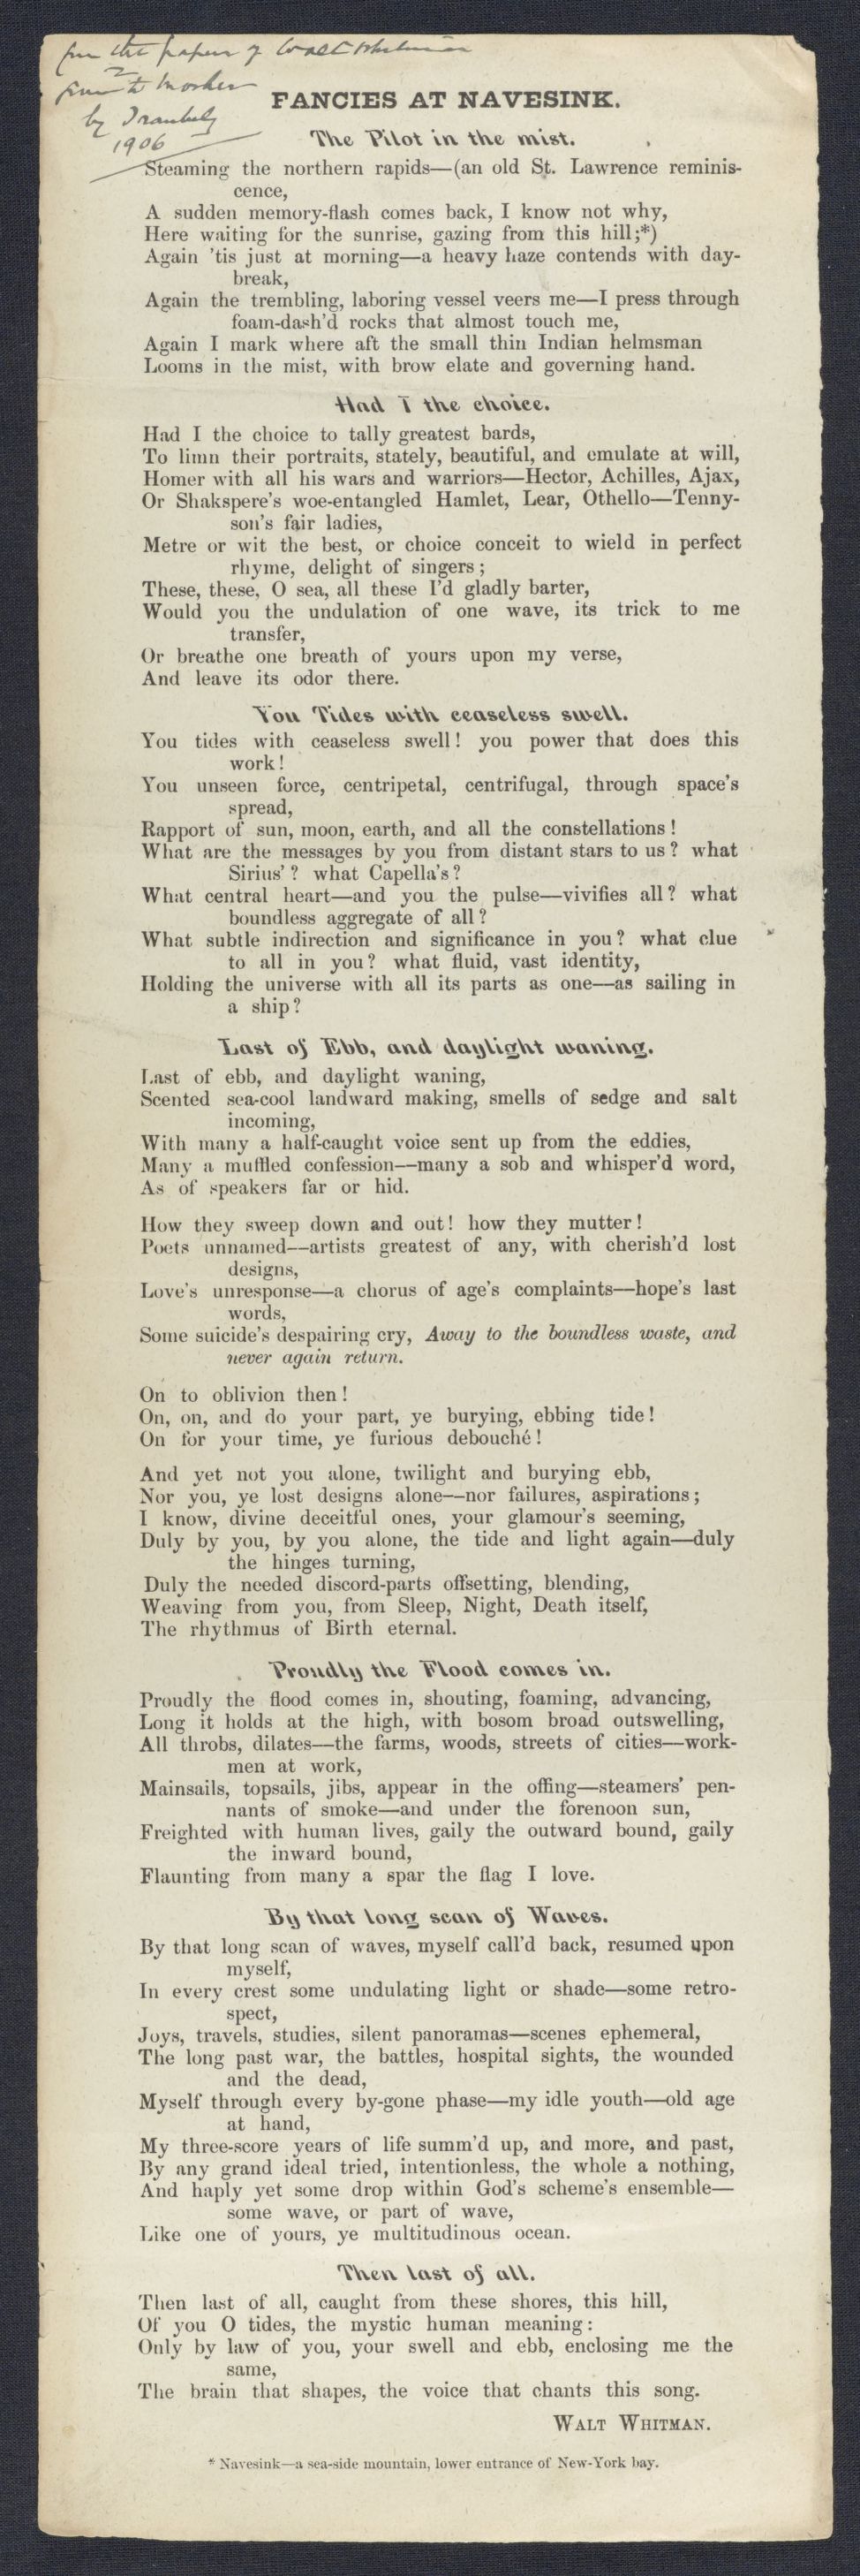 from the papers of Walt Whitman
given to Mosher
by Traubel
1906
FANCIES AT NAVESINK.
The Pilot in the mist.
Steaming the northern rapids—(an old St. Lawrence reminis-
cence,
A sudden memory-flash comes back, I know not why,
Here waiting for the sunrise, gazing from this hill;*)
Again 'tis just at morning—a heavy haze contends with day-
break,
Again the trembling, laboring vessel veers me—I press through
foam-dash'd rocks that almost touch me,
Again I mark where aft the small thin Indian helmsman
Looms in the mist, with brow elate and governing hand.
Had I the choice.
Had I the choice to tally greatest bards,
To limn their portraits, stately, beautiful, and emulate at will,
Homer with all his wars and warriors—Hector, Achilles, Ajax,
Or Shakspere's woe-entangled Hamlet, Lear, Othello—Tenny-
son's fair ladies,
Metre or wit the best, or choice conceit to wield in perfect
rhyme, delight of singers;
These, these, O sea, all these I'd gladly barter,
Would you the undulation of one wave, its trick to me
transfer,
Or breathe one breath of yours upon my verse,
And leave its odor there.
You Tides with ceaseless swell.
You tides with ceaseless swell! you power that does this
work!
You unseen force, centripetal, centrifugal, through space's
spread,
Rapport of sun, moon, earth, and all the constellations!
What are the messages by you from distant stars to us? what
Sirius'? what Capella's?
What central heart—and you the pulse—vivifies all? what
boundless aggregate of all?
What subtle indirection and significance in you? what clue
to all in you? what fluid, vast identity,
Holding the universe with all its parts as one—as sailing in
a ship?
Last of Ebb, and daylight waning.
Last of ebb, and daylight waning,
Scented sea-cool landward making, smells of sedge and salt
incoming,
With many a half-caught voice sent up from the eddies,
Many a muffled confession—many a sob and whisper'd word,
As of speakers far or hid.
How they sweep down and out! how they mutter!
Poets unnamed—artists greatest of any, with cherish'd lost
designs,
Love's unresponse—a chorus of age's complaints—hope's last
words,
Some suicide's despairing cry, Away to the boundless waste, and
never again return.
On to oblivion then!
On, on, and do your part, ye burying, ebbing tide!
On for your time, ye furious debouché!
And yet not you alone, twilight and burying ebb,
Nor you, ye lost designs alone—nor failures, aspirations;
I know, divine deceitful ones, your glamour's seeming,
Duly by you, by you alone, the tide and light again—duly
the hinges turning,
Duly the needed discord-parts offsetting, blending,
Weaving from you, from Sleep, Night, Death itself,
The rhythmus of Birth eternal.
Proudly the Flood comes in.
Proudly the flood comes in, shouting, foaming, advancing,
Long it holds at the high, with bosom broad outswelling,
All throbs, dilates—the farms, woods, streets of cities—work-
men at work,
Mainsails, topsails, jibs, appear in the offing—steamers' pen-
nants of smoke—and under the forenoon sun,
Freighted with human lives, gaily the outward bound, gaily
the inward bound,
Flaunting from many a spar the flag I love.
By that long scan of Waves.
By that long scan of waves, myself call'd back, resumed upon
myself,
In every crest some undulating light or shade—some retro-
spect,
Joys, travels, studies, silent panoramas—scenes ephemeral,
The long past war, the battles, hospital sights, the wounded
and the dead,
Myself through every by-gone phase—my idle youth—old age
at hand,
My three-score years of life summ'd up, and more, and past,
By any grand ideal tried, intentionless, the whole a nothing,
And haply yet some drop within God's scheme's ensemble—
some wave, or part of wave,
Like one of yours, ye multitudinous ocean.
Then last of all.
Then last of all, caught from these shores, this hill,
Of you O tides, the mystic human meaning:
Only by law of you, your swell and ebb, enclosing me the
same,
The brain that shapes, the voice that chants this song.
WALT WHITMAN.
* Navesink—a sea-side mountain, lower entrance of New-York bay.